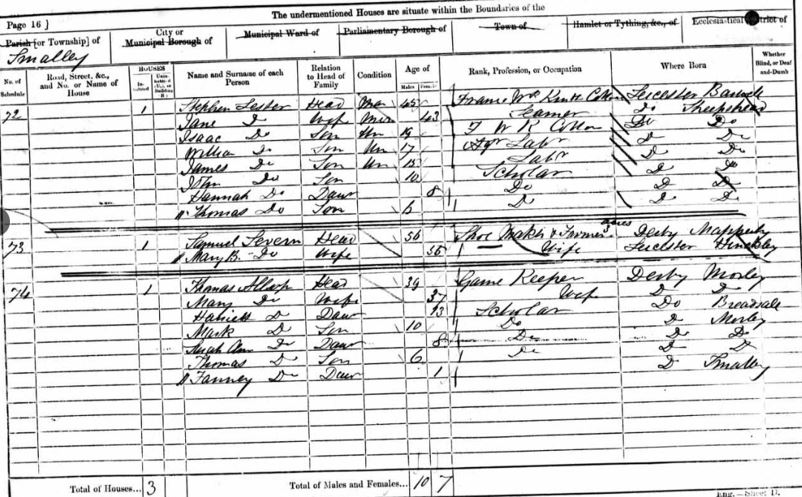 The undermentioned Houses are situate within the Boundaries of the
Page 16 ]
Parish [or Township] of
Smalley
City or
Municipal Borough of
Municipal Ward of
Parliamentary Borough of
Town of
Hamlet or Tything, &c., of
Ecclesiastical District of
No. of Schedule
Road, Street, &c., and No. or Name of House
HOUSES
Name and Surname of each Person
Relation to Head of Family
Condition
Age of
Males
Rank, Profession, or Occupation
Where Born
Whether Blind, or Deaf-and-Dumb
72 1 Stephen Lester Head Mar 45 Frame Wk Knitt Cotton Leicester Barwell
Jane Do Wife Mar 43 Seamer Do Sheepshead
Isaac Do Son Un 19 F W K Cotton Do Do
William Do Son Un 17 Ag Labr D Do
James Do Son Un 15 Labr D Do
John Do Son 10 Scholar D D
Hannah Do Daur 8 Do D D
Thomas Do Son 5 D D D
73 1 Samuel Severn Head 56 Shoe Maker & Farmer 3 acres Derby Mapperly
Mary B. Do Wife 55 Wife Leicester Hinckley
74 1 Thomas Allsop Head 39 Game Keeper Derby Morley
Mary Do Wife 37 Wife D D
Harriett D Daur 13 Scholar Do Breadsall
Mark D Son 10 Do D Morley
Sarah Ann D Daur 8 Do D D
Thomas D Son 6 Do D D
Fanney Do Daur 1 D Smalley
Total of Houses... 3
Total of Males and Females... 10 7
Eng.—Sheet D.